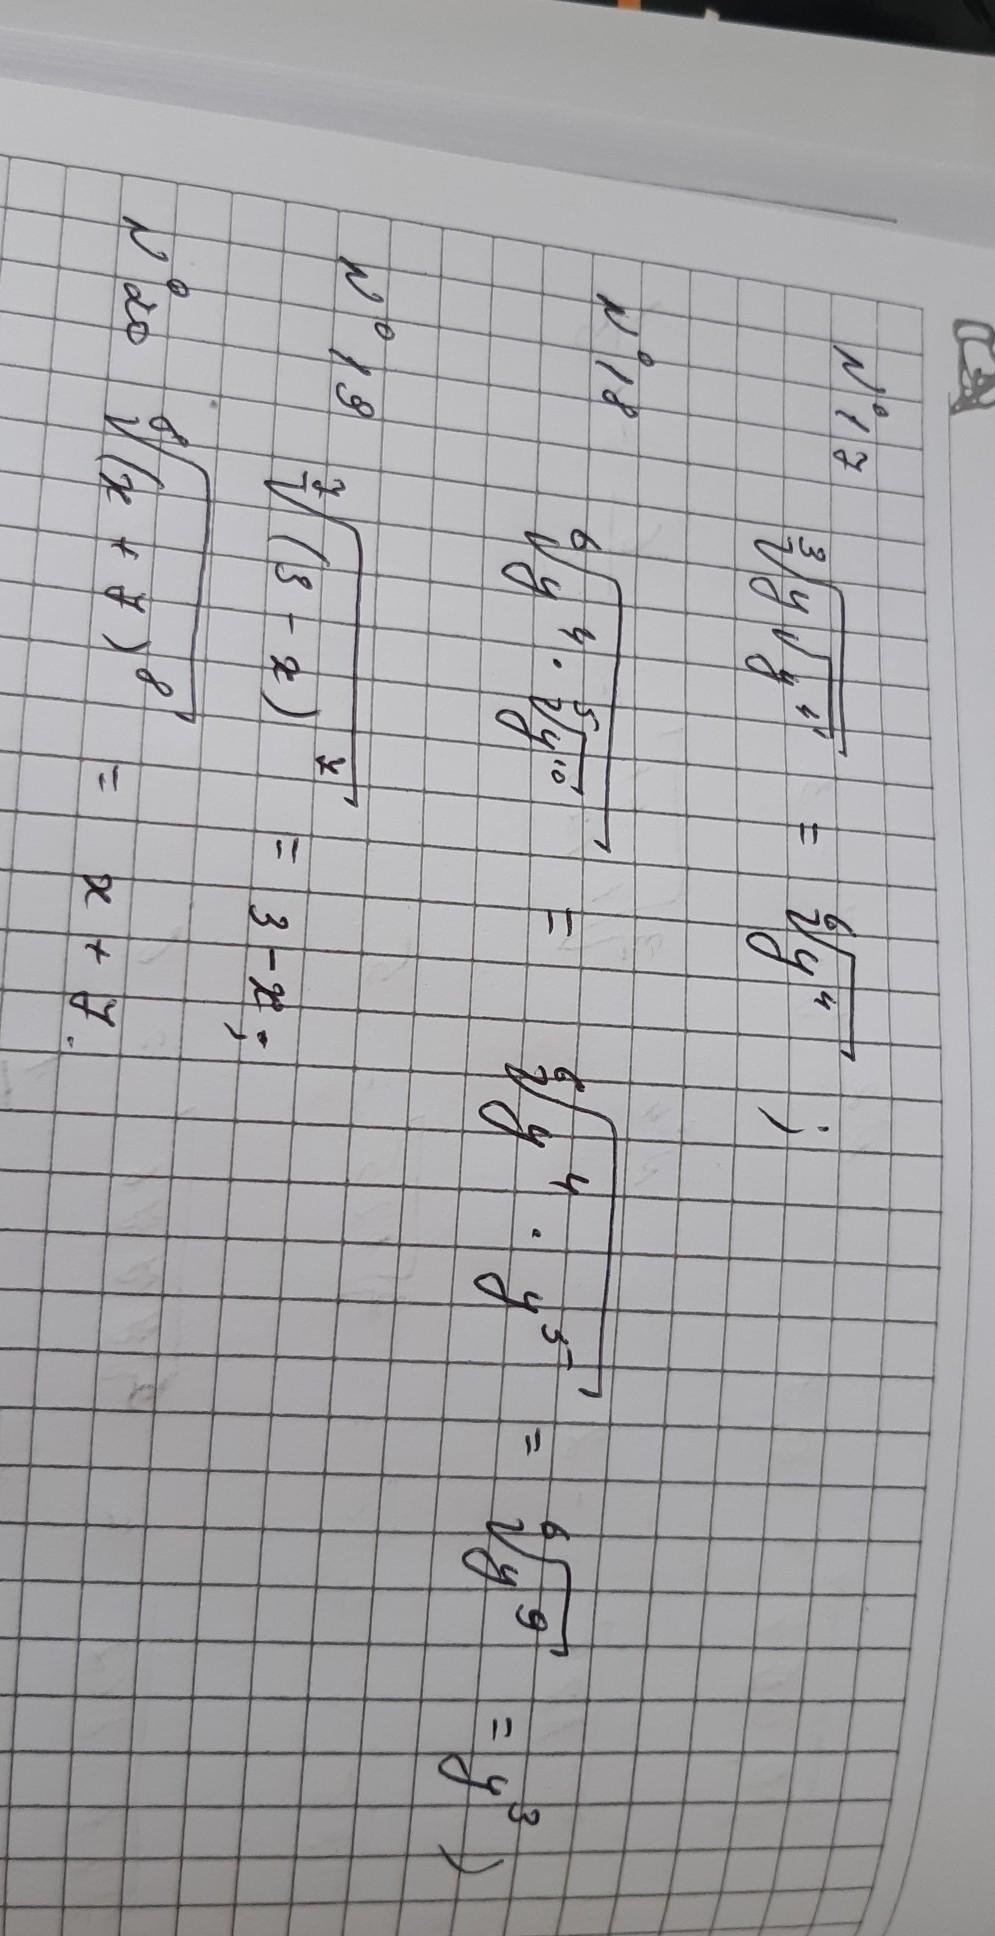 N° 17 ∛(y√(y⁴)) = ⁶√(y⁴) ;
N° 18 ⁶√(y⁴ · ⁵√(y¹⁰)) = ⁶√(y⁴ · y⁵) = ⁶√(y⁹) = y³)
N° 19 ⁷√((3 - x)⁷) = 3 - x ;
N° 20 ⁸√((x + 7)⁸) = x + 7.